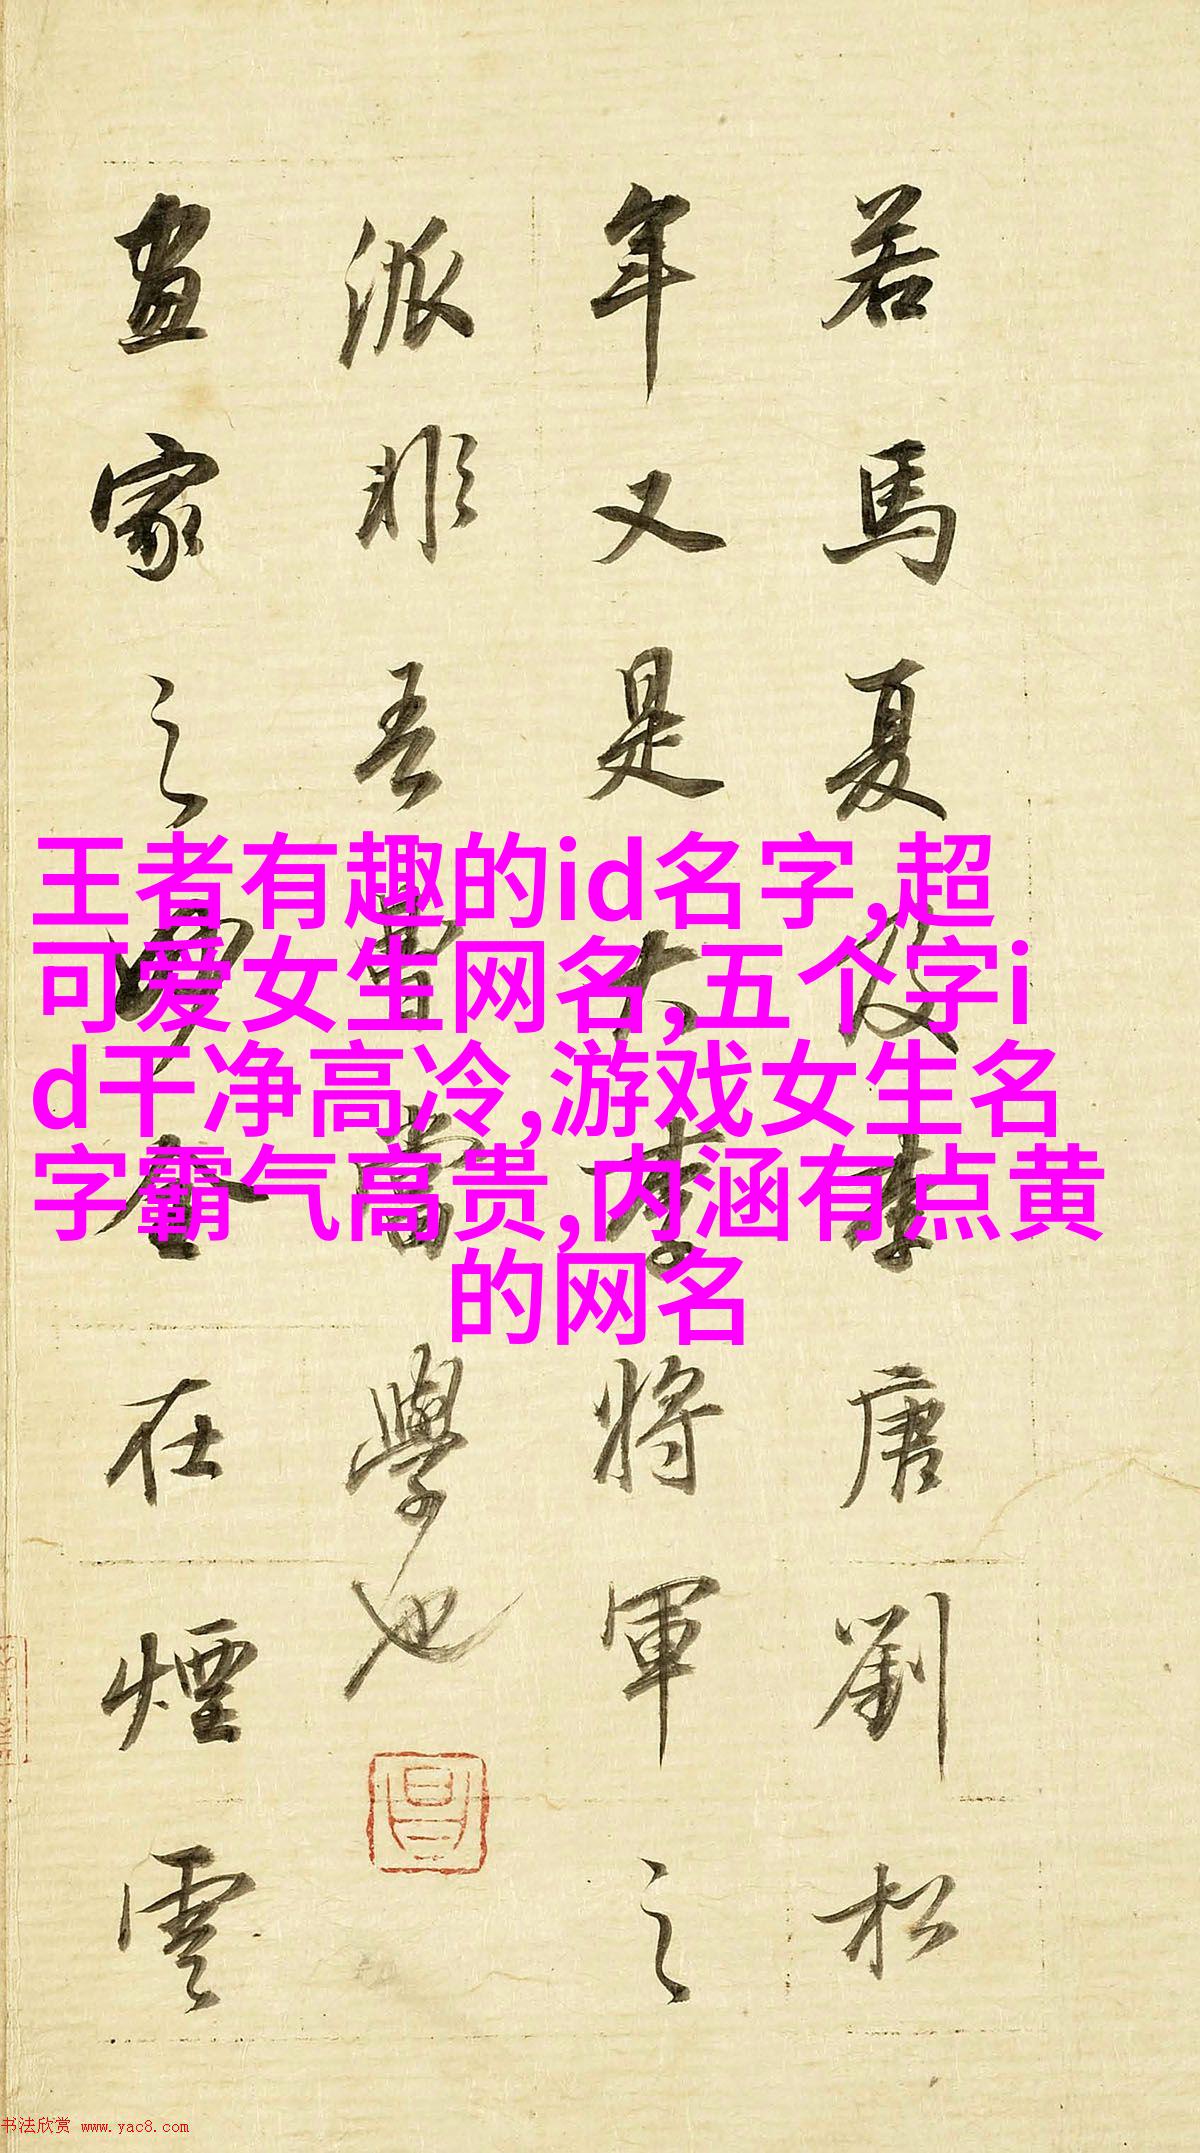 若馬夏及李唐劉松
年又是大李將軍之
派非吾曹當學也
畫家之妙全在煙雲
王者有趣的id名字,超
可爱女生网名,五个字i
d干净高冷,游戏女生名
字霸气高贵,内涵有点黄
的网名
书法欣赏 www.yac8.com